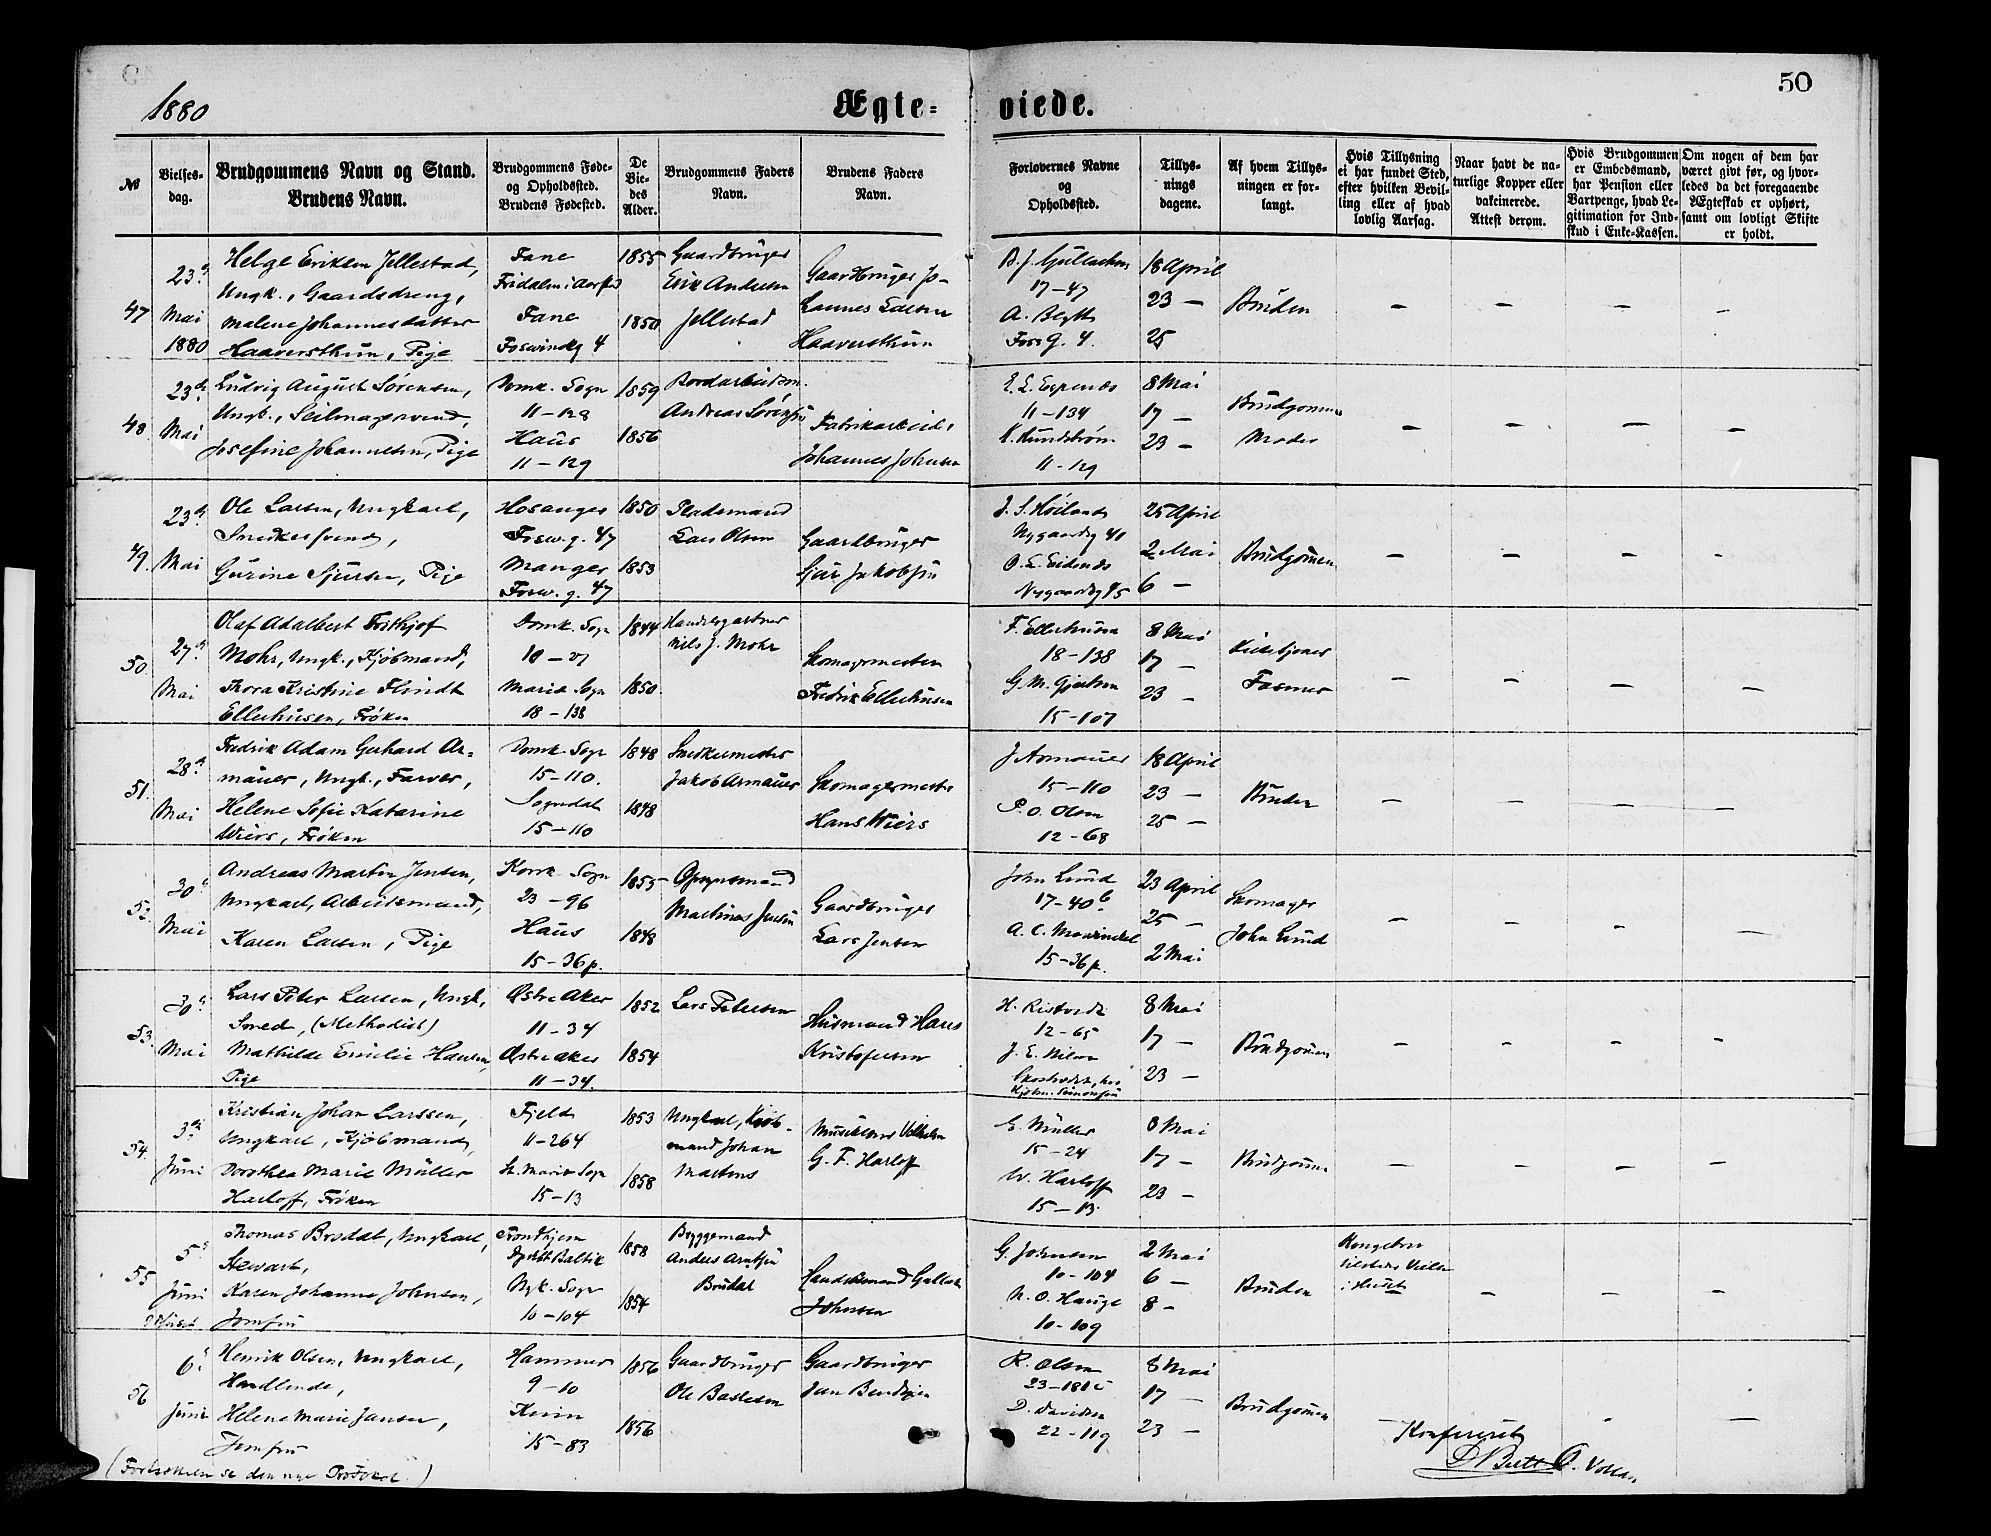 1880
Ægte-
viede.
50
№
Vielses-
dag.
Brudgommens Navn og Stand.
Brudens Navn.
Brudgommens Føde-
og Opholdssted.
Brudens Fødested.
De
Vie-
des
Alder.
Brudgommens Faders
Navn.
Brudens Faders
Navn.
Forlovernes Navne
og
Opholdssted.
Tillys-
nings
dagene.
Af hvem Tillys-
ningen er for-
langt.
Hvis Tillysning
ei har fundet Sted,
efter hvilken Bevil-
ling eller af hvad
lovlig Aarsag.
Naar havt de na-
turlige Kopper eller
vakcinerede.
Attest derom.
Hvis Brudgommen
er Embedsmand,
har Pension eller
Vartpenge, hvad Le-
gitimation for Ind-
skud i Enke-Kassen.
Om nogen af dem har
været givt før, og hvor-
ledes da det foregaaende
Ægteskab er ophørt,
samt om lovligt Skifte
er holdt.
47
23de
Mai
1880
Helge Eriksen Jellestad,
Ungk., Gaardsdreng,
Malene Johannesdatter
Haaversthun, Pige
Fane
Fridalen i Aarstad
Fane
1855
1850
Gaardbruger
Erik Andersen
Jellestad
Gaardbruger Jo-
hannes Larsen
Haaversthun
17-47
A. Blytt
18 April
23 -
25
Bruden
48
23de
Mai
Ludvig August Sørensen,
Ungk., Seilmagersvend,
Josefine Johannesen, Pige
Domk. Sogn
11-128
Haus
11-129
1859
1856
Andreas Sørensen
Johannes Johnsen
11-134
11-129
8 Mai
17 -
23 -
Brudgommens
Moder
49
23de
Mai
Ole Larsen, Ungkarl,
Snedkersvend,
Gurine Sjursen, Pige
Hosanger
Forsw. g. 47
Manger
Forsw. g. 47
1850
1853
Pladsmand
Lars Olsen
Gaardbruger
Sjur Jakobsen
Nygaardsg 41
Nygaardsg 45
25 April
2 Mai
6 -
Brudgommen
50.
27de
Mai
Olaf Adalbert Frithjof
Mohr, Ungk., Kjøbmand,
Thora Kristine Flindt
Ellerhusen, Frøken
Domk. Sogn
Maria Sogn
18-138
1844
1850.
Handelsgartner
Nils J. Mohr
Skomagermester
Fredrik Ellerhusen
F. Ellerhusen
18-138
G. M. Gjertsen
15-107
8 Mai
17 -
23 -
Kirketjener
Fasmer
51.
28de
Mai
Fredrik Adam Gerhard Ar-
mauer, Ungk., Farver,
Helene Sofie Katarine
Wiers, Frøken
Domk. Sogn
15-110.
Sogndal
15-110
1848
1848
Snedkermester
Jakob Armauer
Skomagermester
Hans Wiers
J. Armauer
15-110
P. O. Olsen
12-68
18 April
23 -
25 -
Bruden
52.
30de
Mai
Andreas Martin Jensen,
Ungkarl, Arbeidsmand,
Karen Larsen, Pige
Korsk. Sogn
23-96
Haus
15-36p.
1855
1848
Opsynsmand
Martinus Jensen
Gaardbruger
Lars Jensen
John Lund
17-40b
15-36p.
23 April
25 -
2 Mai
Skomager
John Lund
53.
30de
Mai
Lars Peter Larsen, Ungk.
Smed, (Methodist)
Mathilde Emilie Hansen,
Pige
Østre Aker
11-34
Østre Aker
11-34.
1852
1854
Lars Petersen
Husmand Hans
Kristofersen
12-65
8 Mai
17 -
23 -
Brudgommen
54.
3de
Juni
Kristian Johan Larssen,
Ungkarl, Kjøbmand,
Dorothea Marie Müller
Harloff, Frøken
Fjeld
11-264
St. Maria Sogn
15-13
1853
1858
Ungkarl, Kjøb-
mand Johan
Martens
Musiklærer Vilhelm
G. F. Harloff
E. Müller
15-24
W. Harloff
15-13.
8 Mai
17 -
23 -
Brudgommen
55
5de
Juni
i Huset
Thomas Brodal, Ungkarl,
Stewart,
Karen Johanne Johnsen,
Jomfru
Trondhjem
Nyk. Sogn
10-104
1858
1854
Bryggemand
Brodal
Handelsmand
Johnsen
G. Johnsen
10-104
N. O. Hauge
10-109
2 Mai
6 -
8 -
Bruden
i Huset
56
6de
Juni
Henrik Olsen, Ungkarl,
Handlende,
Helene Marie Jansen,
Jomfru
Hammer
9-10
15-83
1856
1856
Gaardbruger
Gaardbruger
R. Olsen
D. Davidsen
22-119
8 Mai
17 -
23 -
Brudgommen
Konfereret
(Fortsættelse se den nye Protokol.)